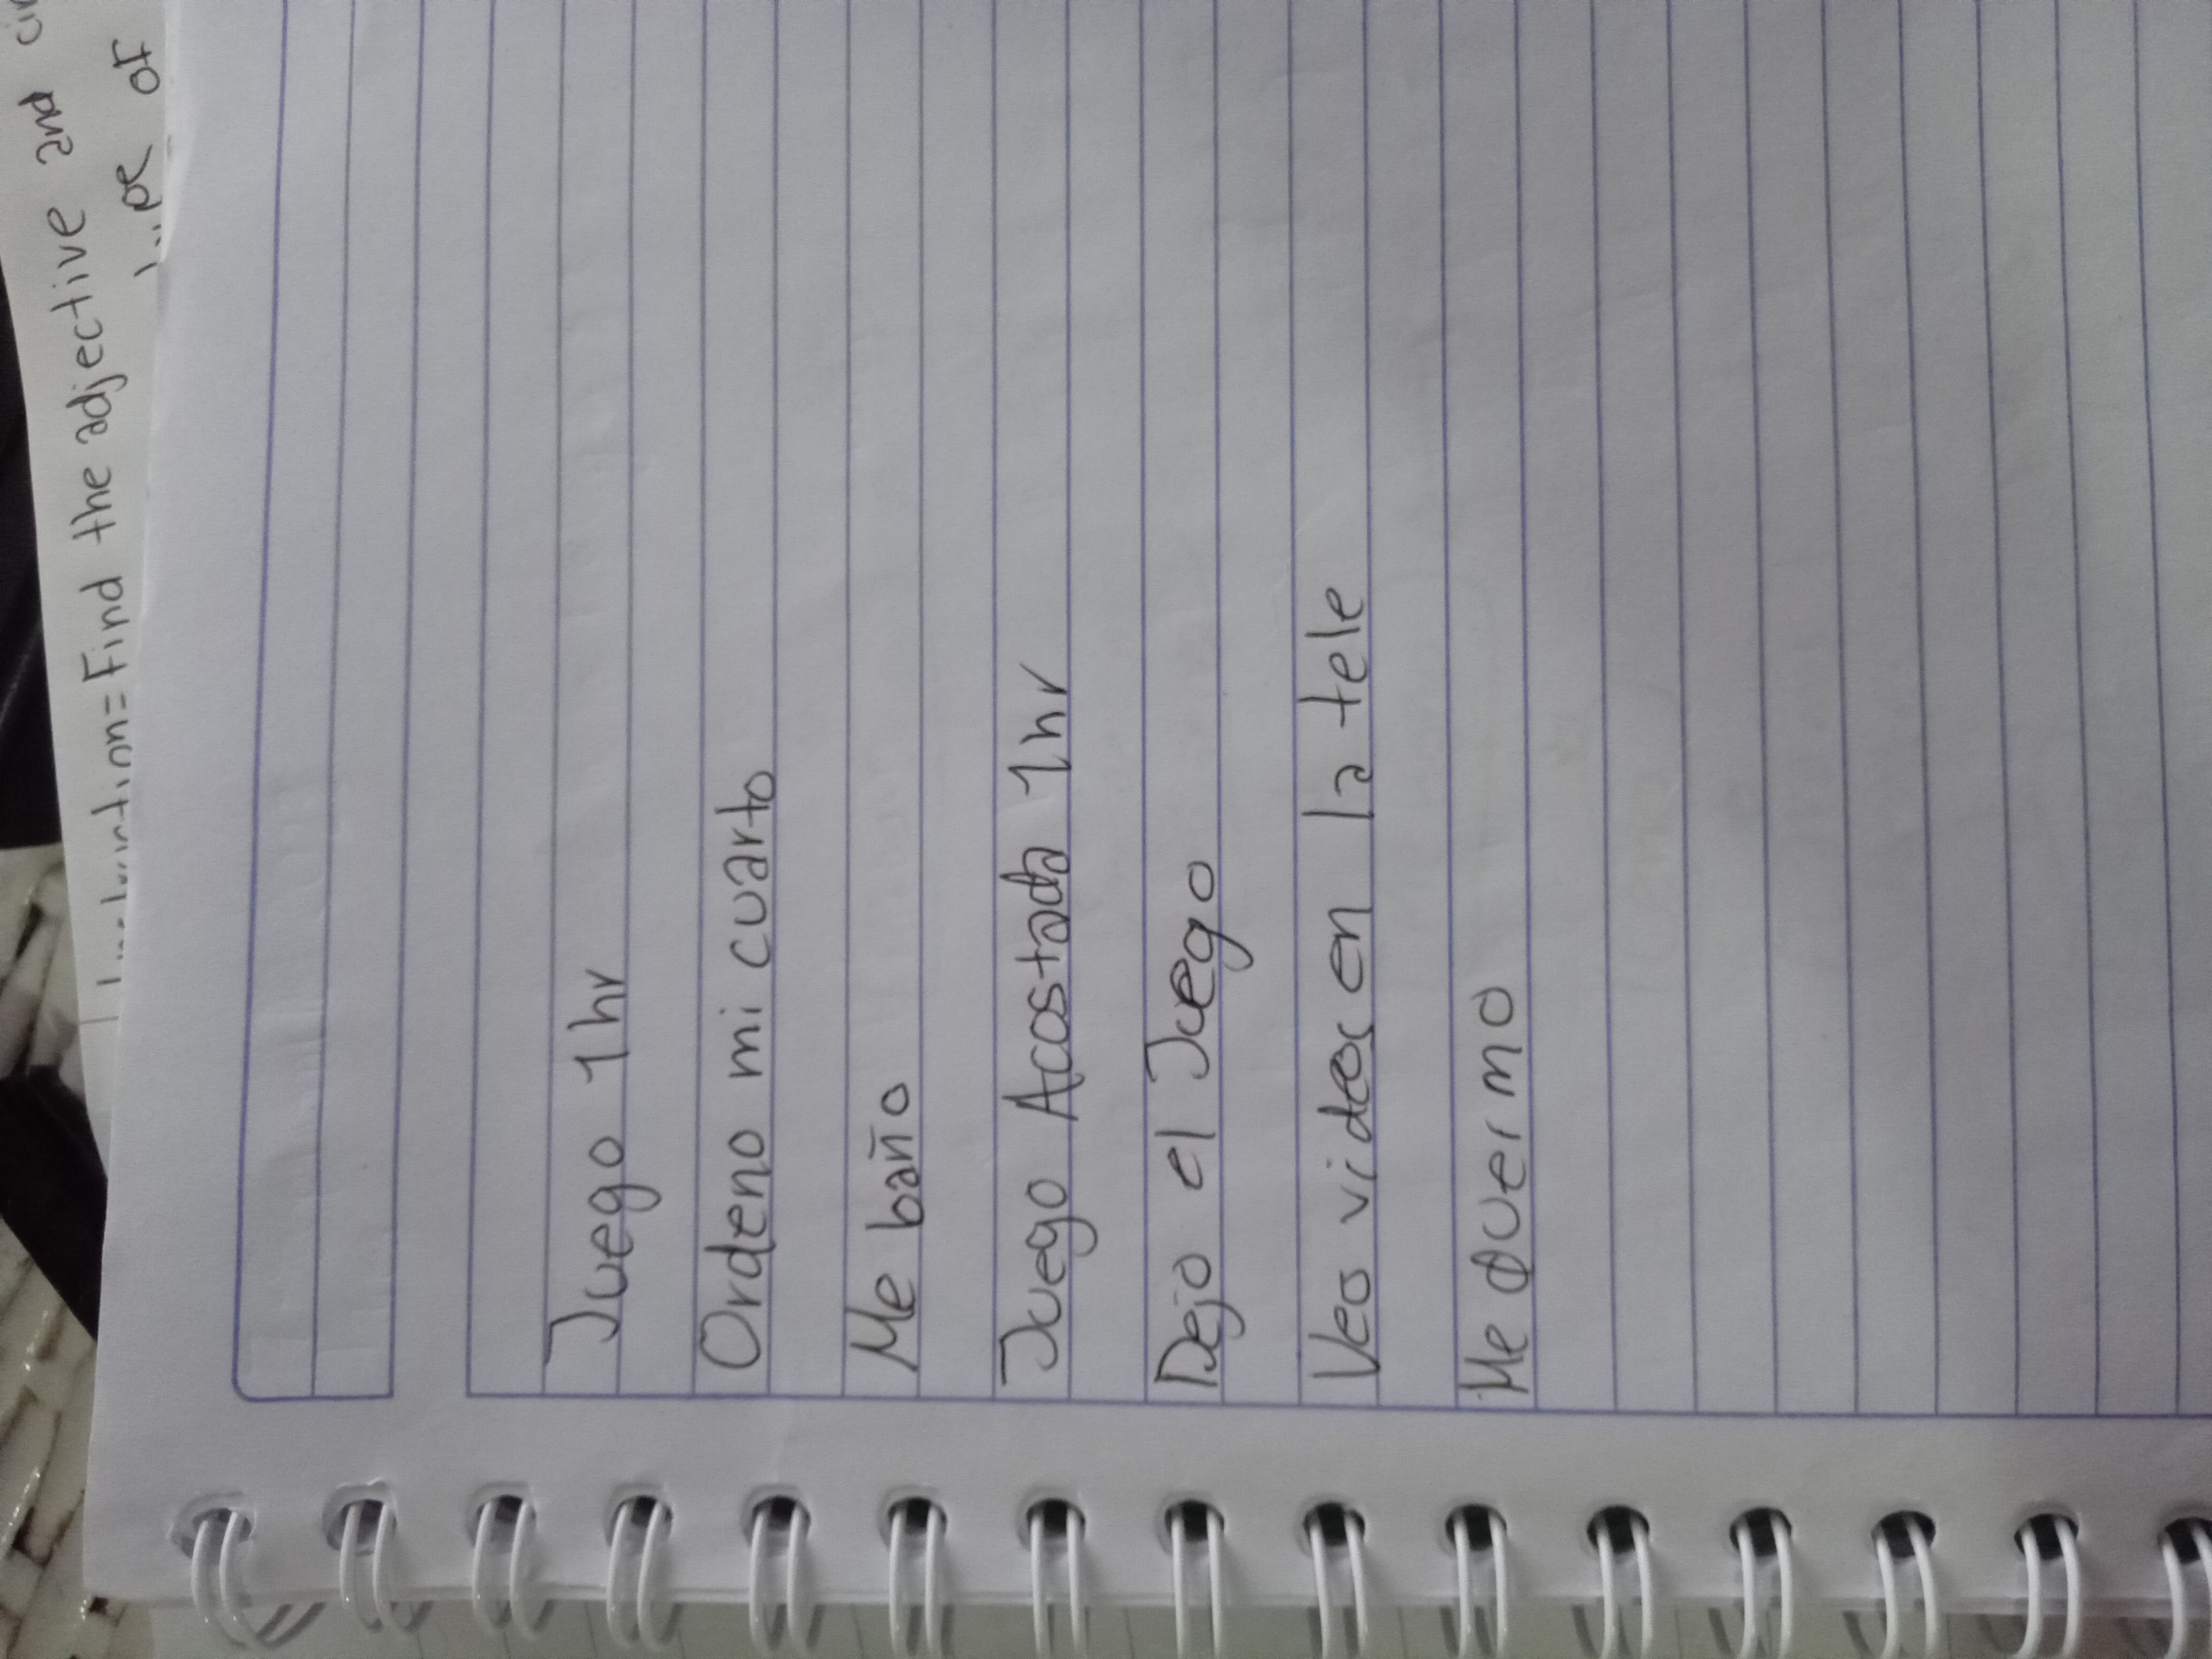 Find the adjective and
Juego 1hr
Ordeno mi cuarto
Me baño
Juego Acostada 1hr
Dejo el Juego
Veo videos en la tele
Me duermo